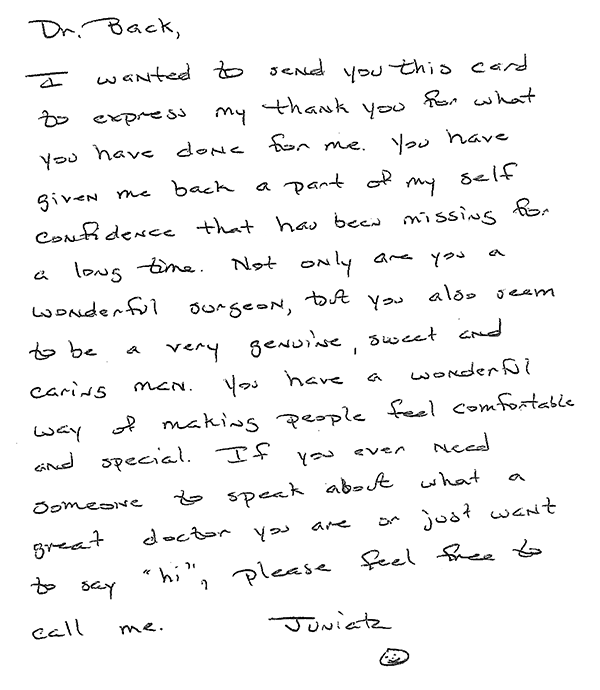 Dr. Back,
I wanted to send you this card
to express my thank you for what
you have done for me. You have
given me back a part of my self
confidence that has been missing for
a long time. Not only are you a
wonderful surgeon, but you also seem
to be a very genuine, sweet and
caring man. You have a wonderful
way of making people feel comfortable
and special. If you ever need
someone to speak about what a
great doctor you are or just want
to say "hi", please feel free to
call me. Juniata